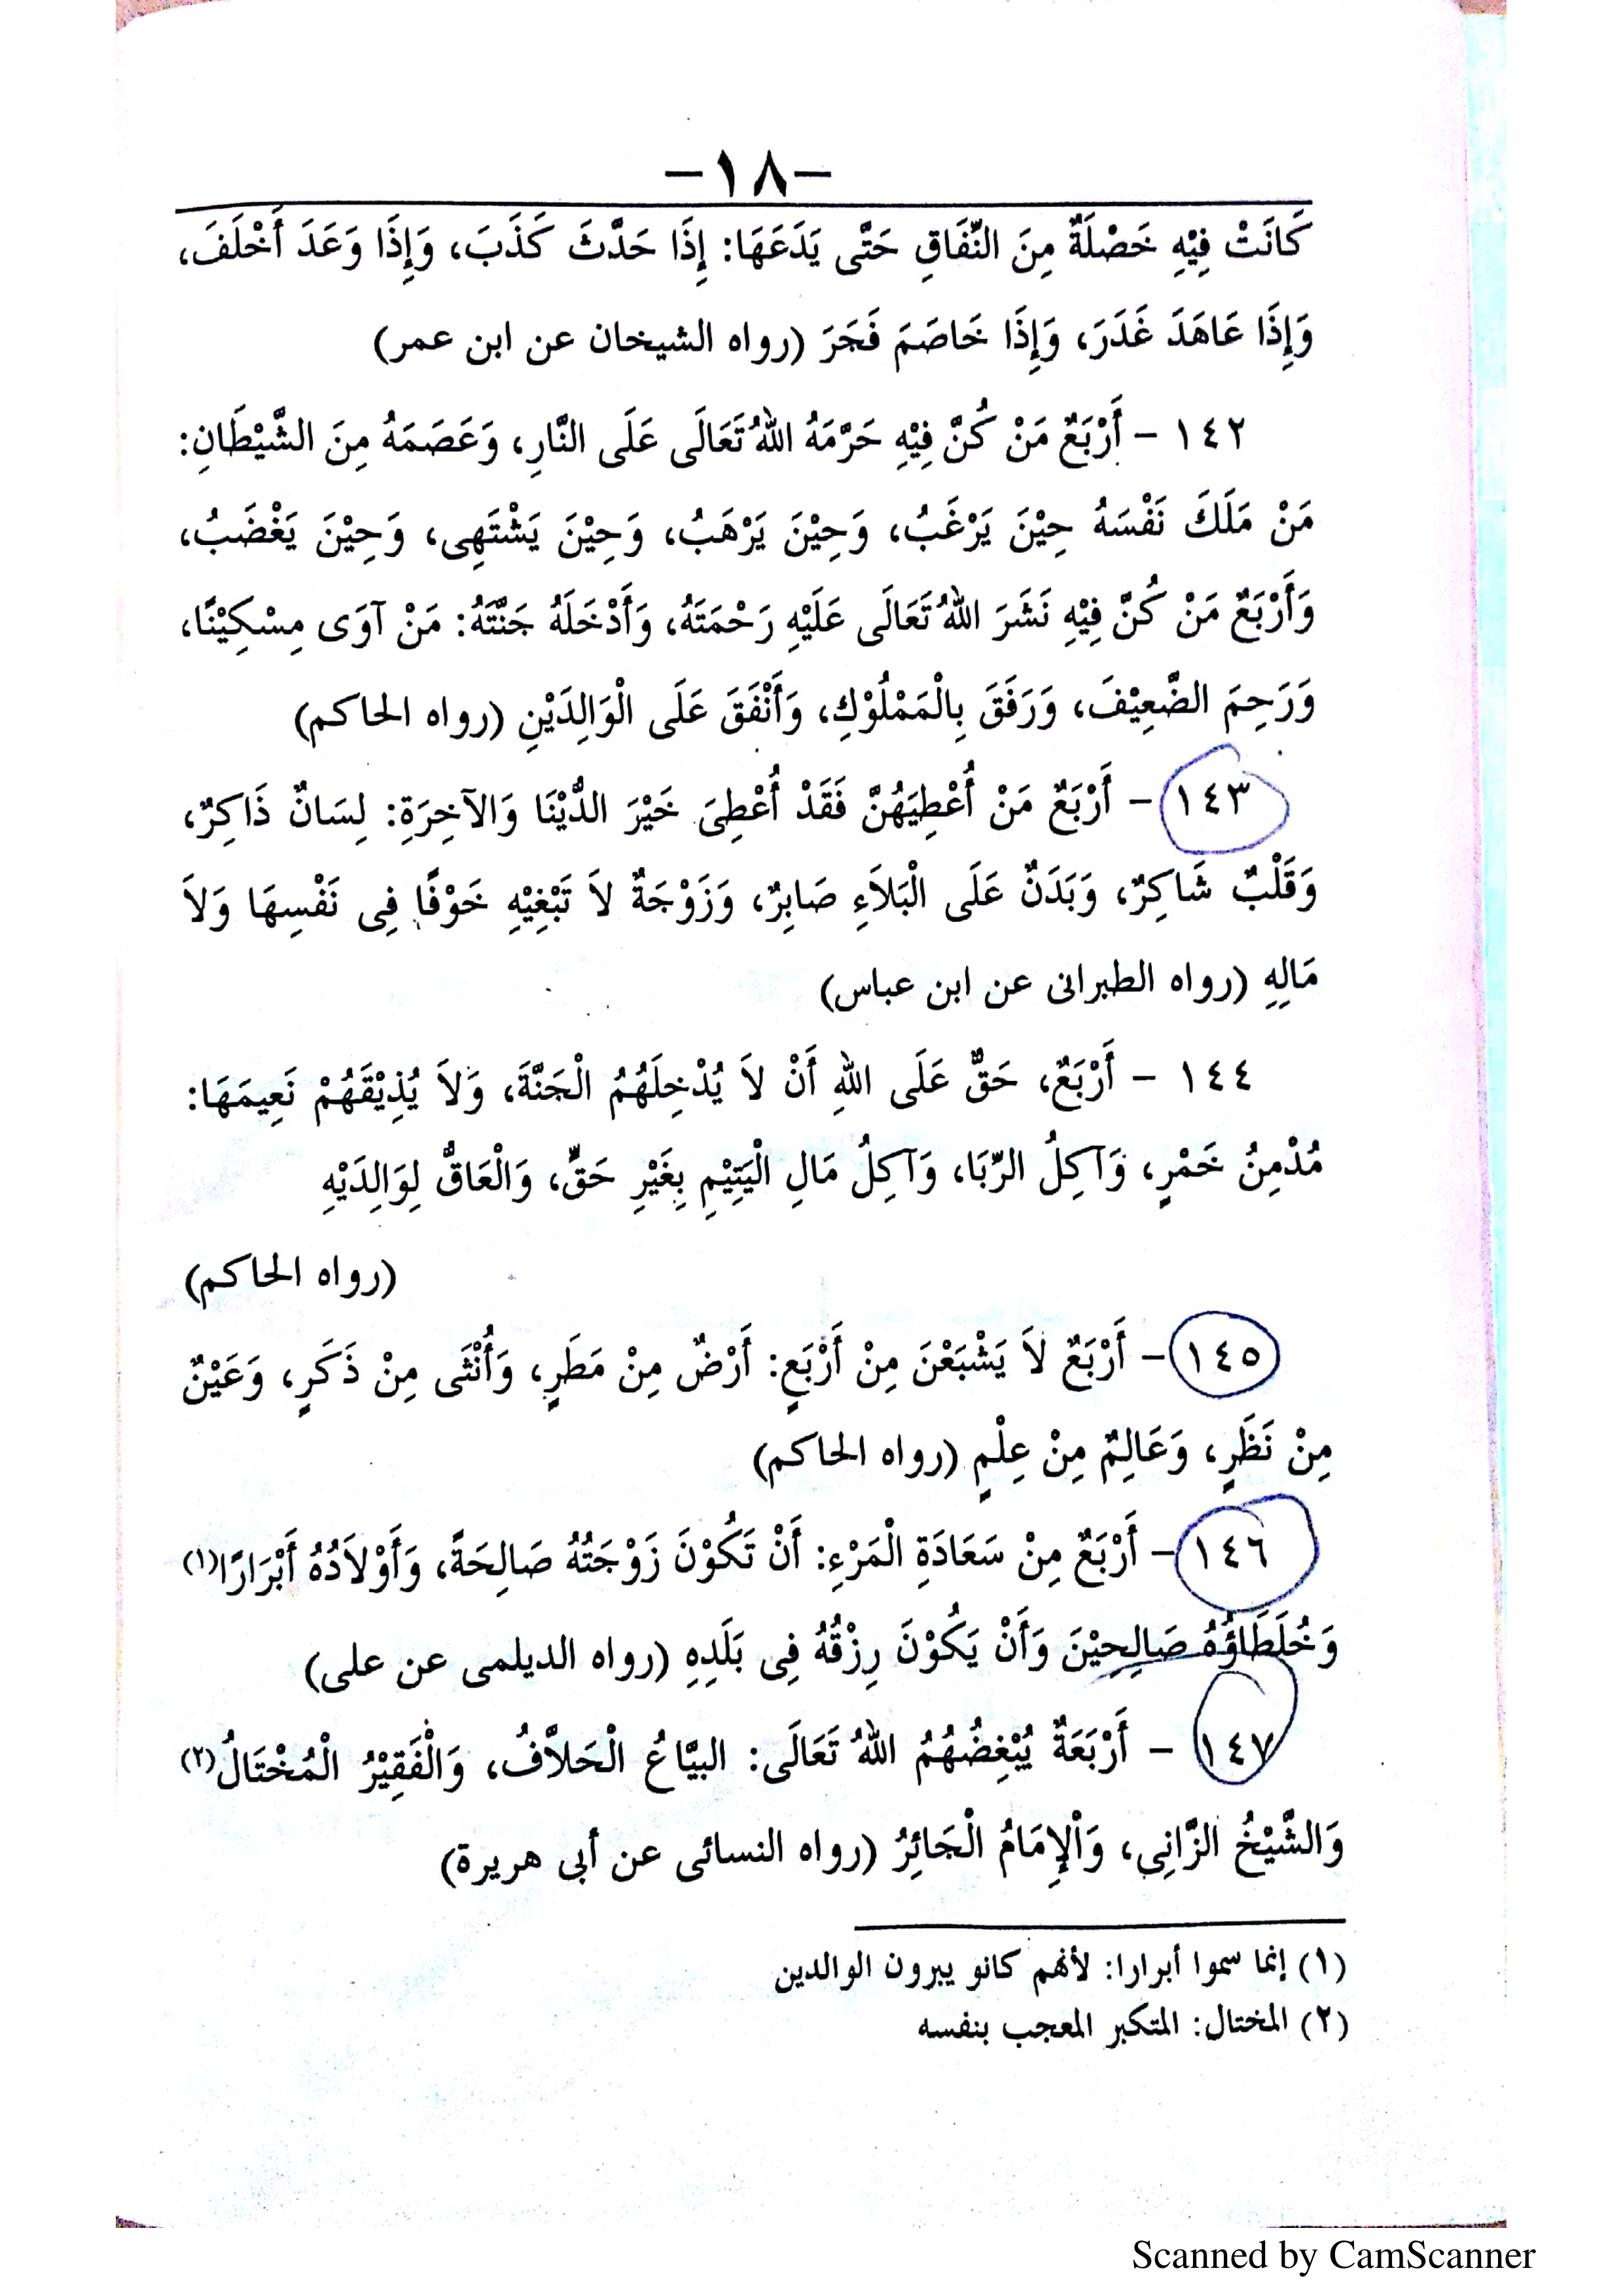 -١٨-
كَانَتْ فِيْهِ خَصْلَةٌ مِنَ النِّفَاقِ حَتَّى يَدَعَهَا: إِذَا حَدَّثَ كَذَبَ، وَإِذَا وَعَدَ أَخْلَفَ،
وَإِذَا عَاهَدَ غَدَرَ، وَإِذَا خَاصَمَ فَجَرَ (رواه الشيخان عن ابن عمر)
١٤٢ - أَرْبَعٌ مَنْ كُنَّ فِيْهِ حَرَّمَهُ اللهُ تَعَالَى عَلَى النَّارِ، وَعَصَمَهُ مِنَ الشَّيْطَانِ:
مَنْ مَلَكَ نَفْسَهُ حِيْنَ يَرْغَبُ، وَحِيْنَ يَرْهَبُ، وَحِيْنَ يَشْتَهِى، وَحِيْنَ يَغْضَبُ،
وَأَرْبَعٌ مَنْ كُنَّ فِيْهِ نَشَرَ اللهُ تَعَالَى عَلَيْهِ رَحْمَتَهُ، وَأَدْخَلَهُ جَنَّتَهُ: مَنْ آوَى مِسْكِيْنًا،
وَرَحِمَ الضَّعِيْفَ، وَرَفَقَ بِالْمَمْلُوْكِ، وَأَنْفَقَ عَلَى الْوَالِدَيْنِ (رواه الحاكم)
١٤٣ - أَرْبَعٌ مَنْ أُعْطِيَهُنَّ فَقَدْ أُعْطِىَ خَيْرَ الدُّيْنَا وَالآخِرَةِ: لِسَانٌ ذَاكِرٌ،
وَقَلْبٌ شَاكِرٌ، وَبَدَنٌ عَلَى الْبَلاَءِ صَابِرٌ، وَزَوْجَةٌ لاَ تَبْغِيْهِ خَوْفًا فِى نَفْسِهَا وَلاَ
مَالِهِ (رواه الطبرانى عن ابن عباس)
١٤٤ - أَرْبَعٌ، حَقٌّ عَلَى اللهِ أَنْ لاَ يُدْخِلَهُمُ الْجَنَّةَ، وَلاَ يُذِيْقَهُمْ نَعِيمَهَا:
مُدْمِنُ خَمْرٍ، وَآكِلُ الرِّبَا، وَآكِلُ مَالِ الْيَتِيْمِ بِغَيْرِ حَقٍّ، وَالْعَاقُّ لِوَالِدَيْهِ
(رواه الحاكم)
١٤٥ - أَرْبَعٌ لاَ يَشْبَعْنَ مِنْ أَرْبَعٍ: أَرْضٌ مِنْ مَطَرٍ، وَأُنْثَى مِنْ ذَكَرٍ، وَعَيْنٌ
مِنْ نَظَرٍ، وَعَالِمٌ مِنْ عِلْمٍ (رواه الحاكم)
١٤٦ - أَرْبَعٌ مِنْ سَعَادَةِ الْمَرْءِ: أَنْ تَكُوْنَ زَوْجَتُهُ صَالِحَةً، وَأَوْلاَدُهُ أَبْرَارًا(١)
وَخُلَطَاؤُهُ صَالِحِيْنَ وَأَنْ يَكُوْنَ رِزْقُهُ فِى بَلَدِهِ (رواه الديلمى عن على)
١٤٧ - أَرْبَعَةٌ يُبْغِضُهُمُ اللهُ تَعَالَى: البيَّاعُ الْحَلاَّفُ، وَالْفَقِيْرُ الْمُخْتَالُ(٢)
وَالشَّيْخُ الزَّانِى، وَاْلإِمَامُ الْجَائِرُ (رواه النسائى عن أبى هريرة)
(١) إنما سموا أبرارا: لأنهم كانو يبرون الوالدين
(٢) المختال: المتكبر المعجب بنفسه
Scanned by CamScanner